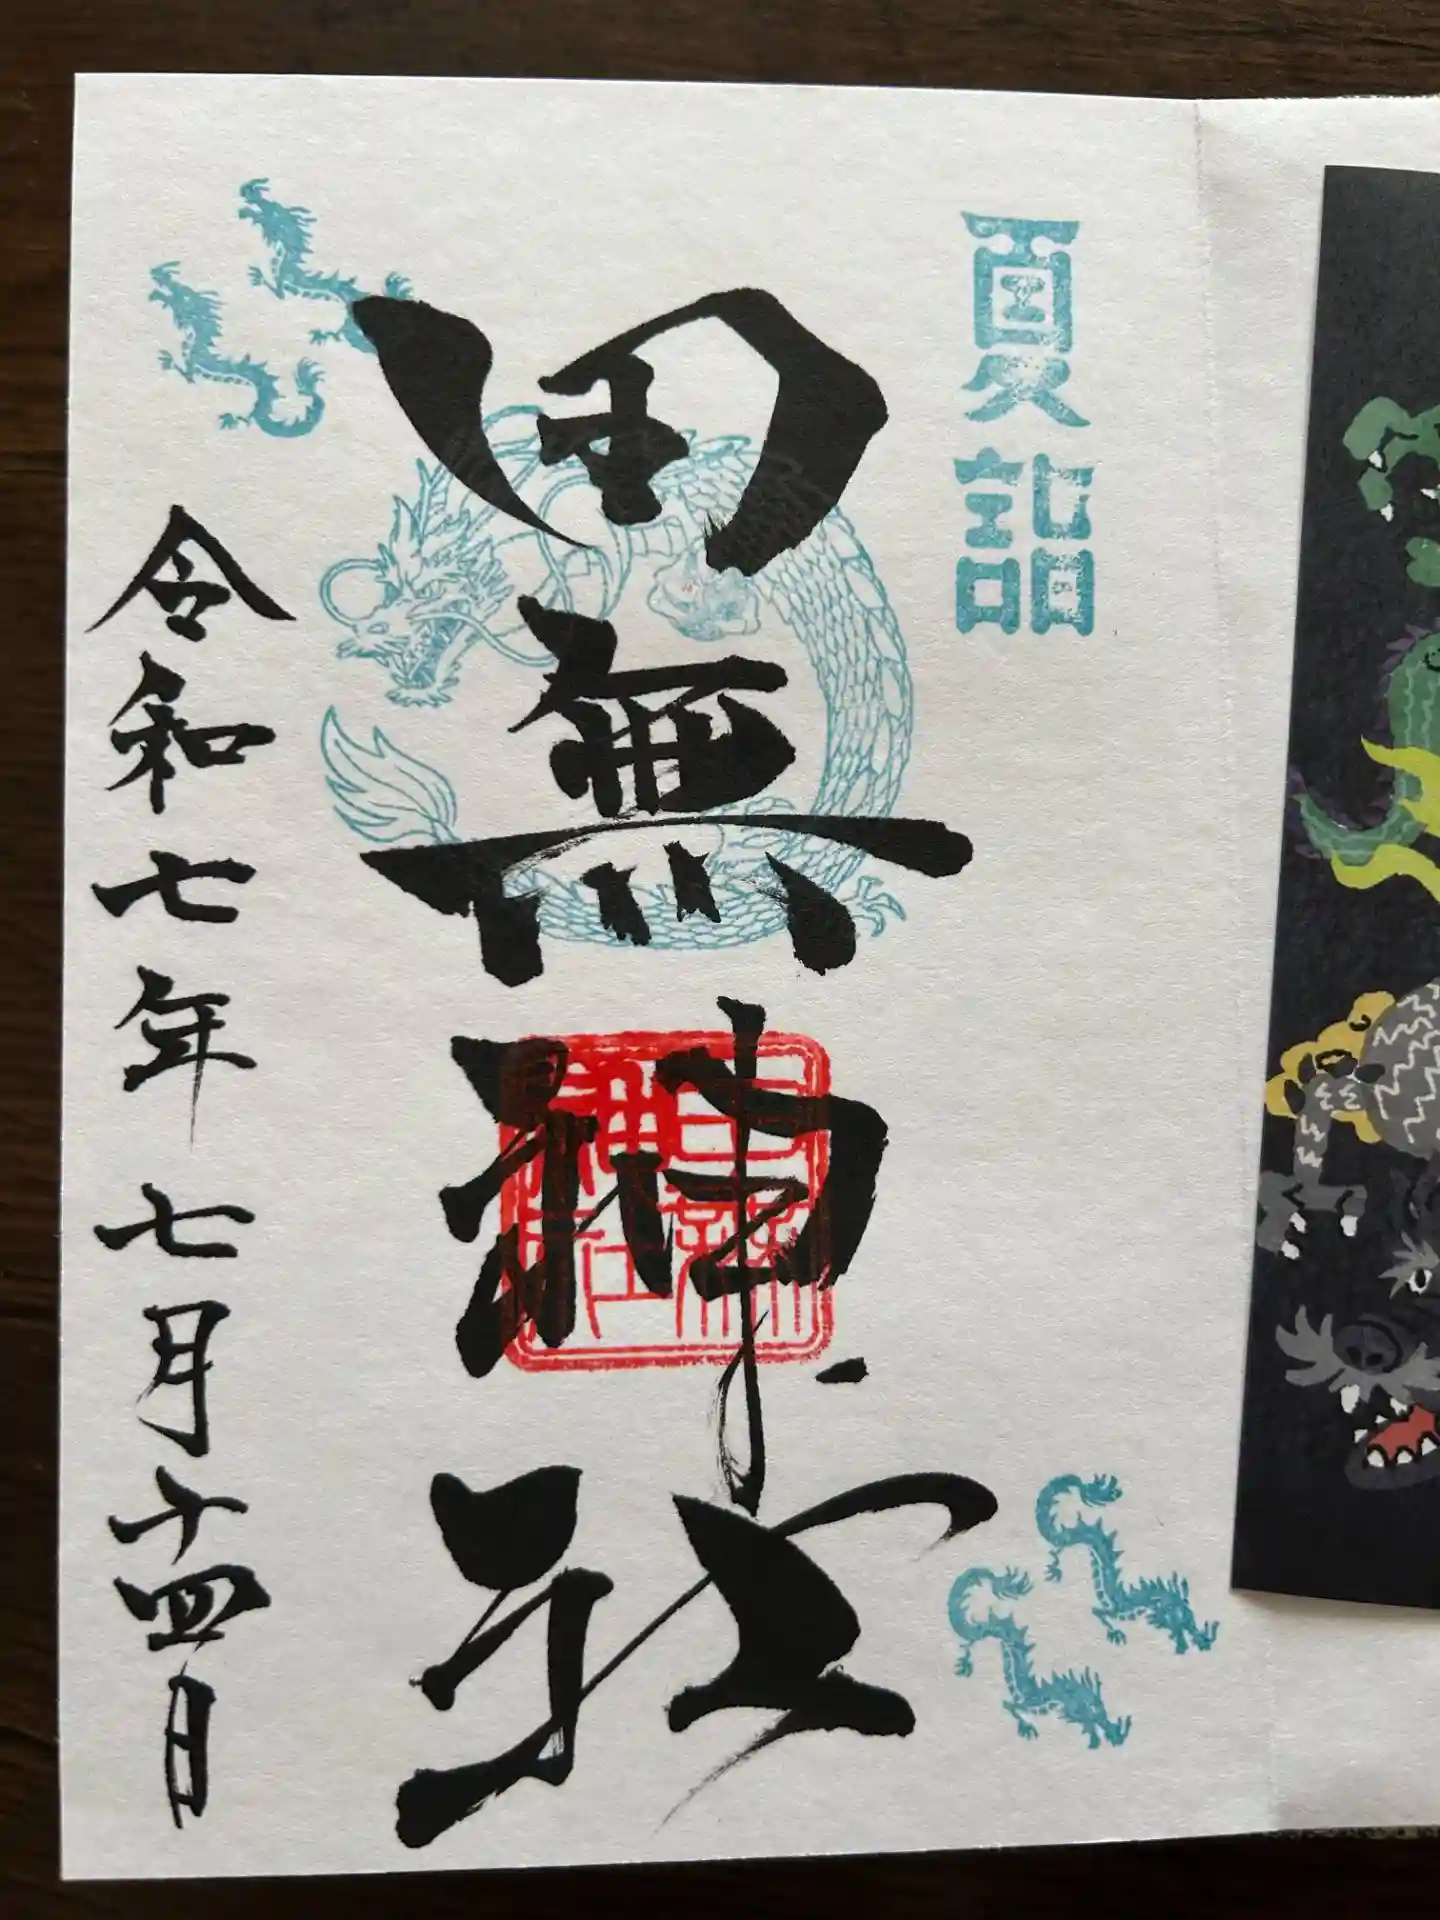 夏詣
田無神社
令和七年七月十四日